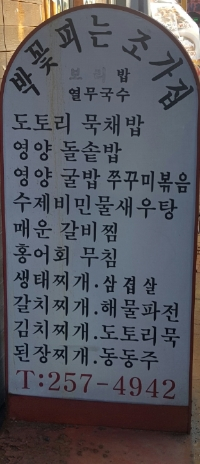 박꽃피는 초가집
보리밥
열무국수
도토리 묵채밥
영양 돌솥밥
영양 굴밥 쭈꾸미볶음
수제비민물새우탕
매운 갈비찜
홍어회 무침
생태찌개.삼겹살
갈치찌개.해물파전
김치찌개.도토리묵
된장찌개.동동주
T:257-4942